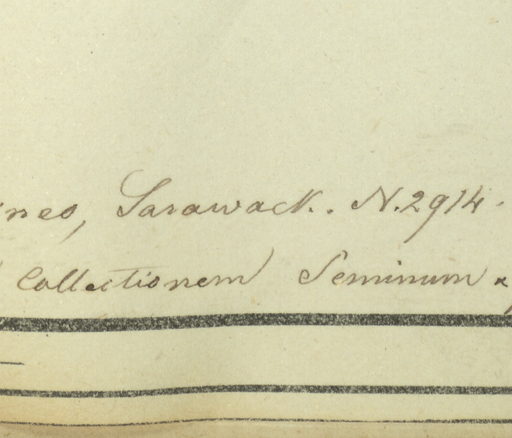 neo, Sarawack. N. 2914.
Collectionem Seminum